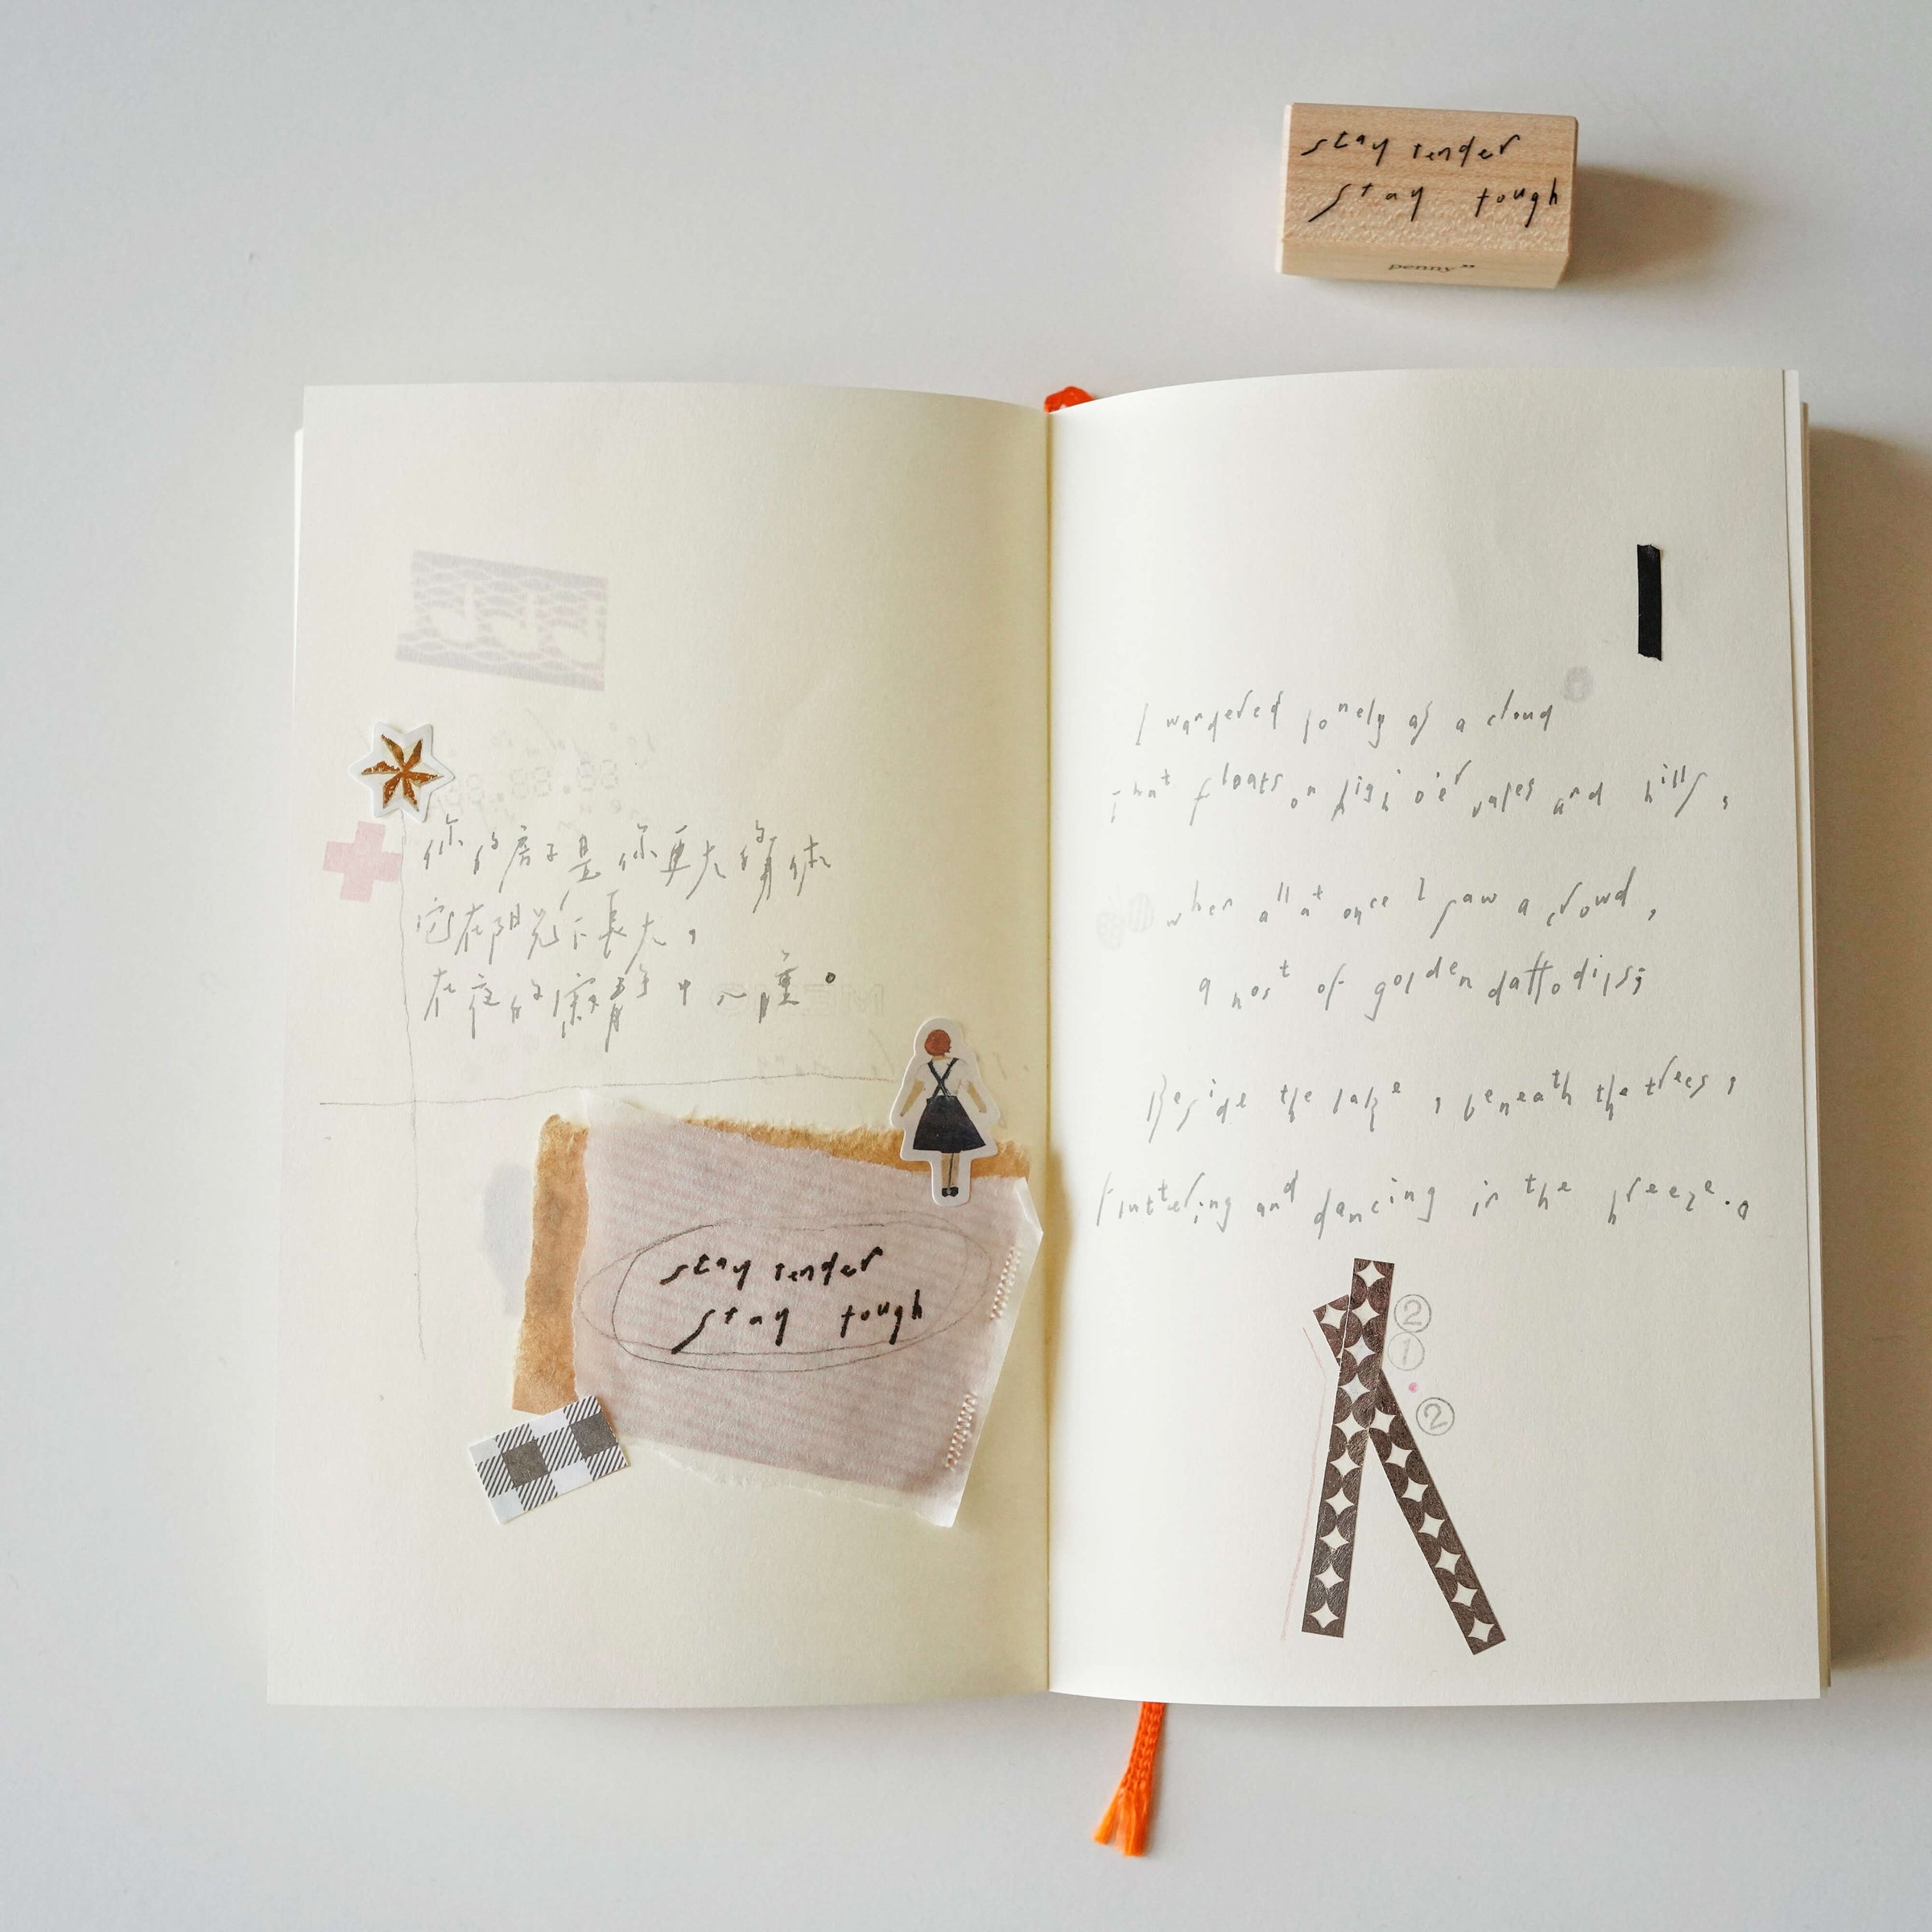 stay tender
stay tough
penny"
你的房子是你更大的身体
它在阳光下長大,
在夜的寂静中入睡。
stay tender
stay tough
I wandered lonely as a cloud
That floats on high o'er vales and hills,
when all at once I saw a crowd,
a host of golden daffodils;
Beside the lake, beneath the trees,
Fluttering and dancing in the breeze.
②
①
②